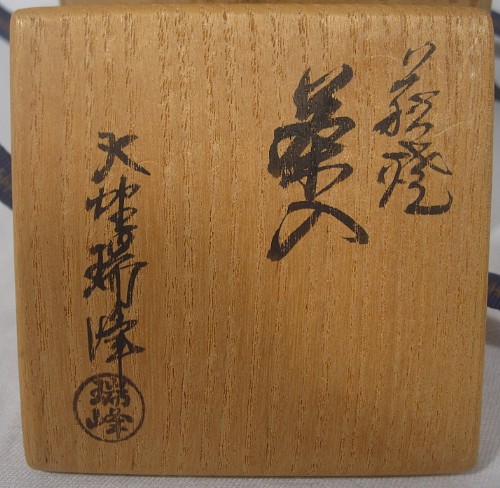 萩焼
茶入
大野瑞峰
瑞峰